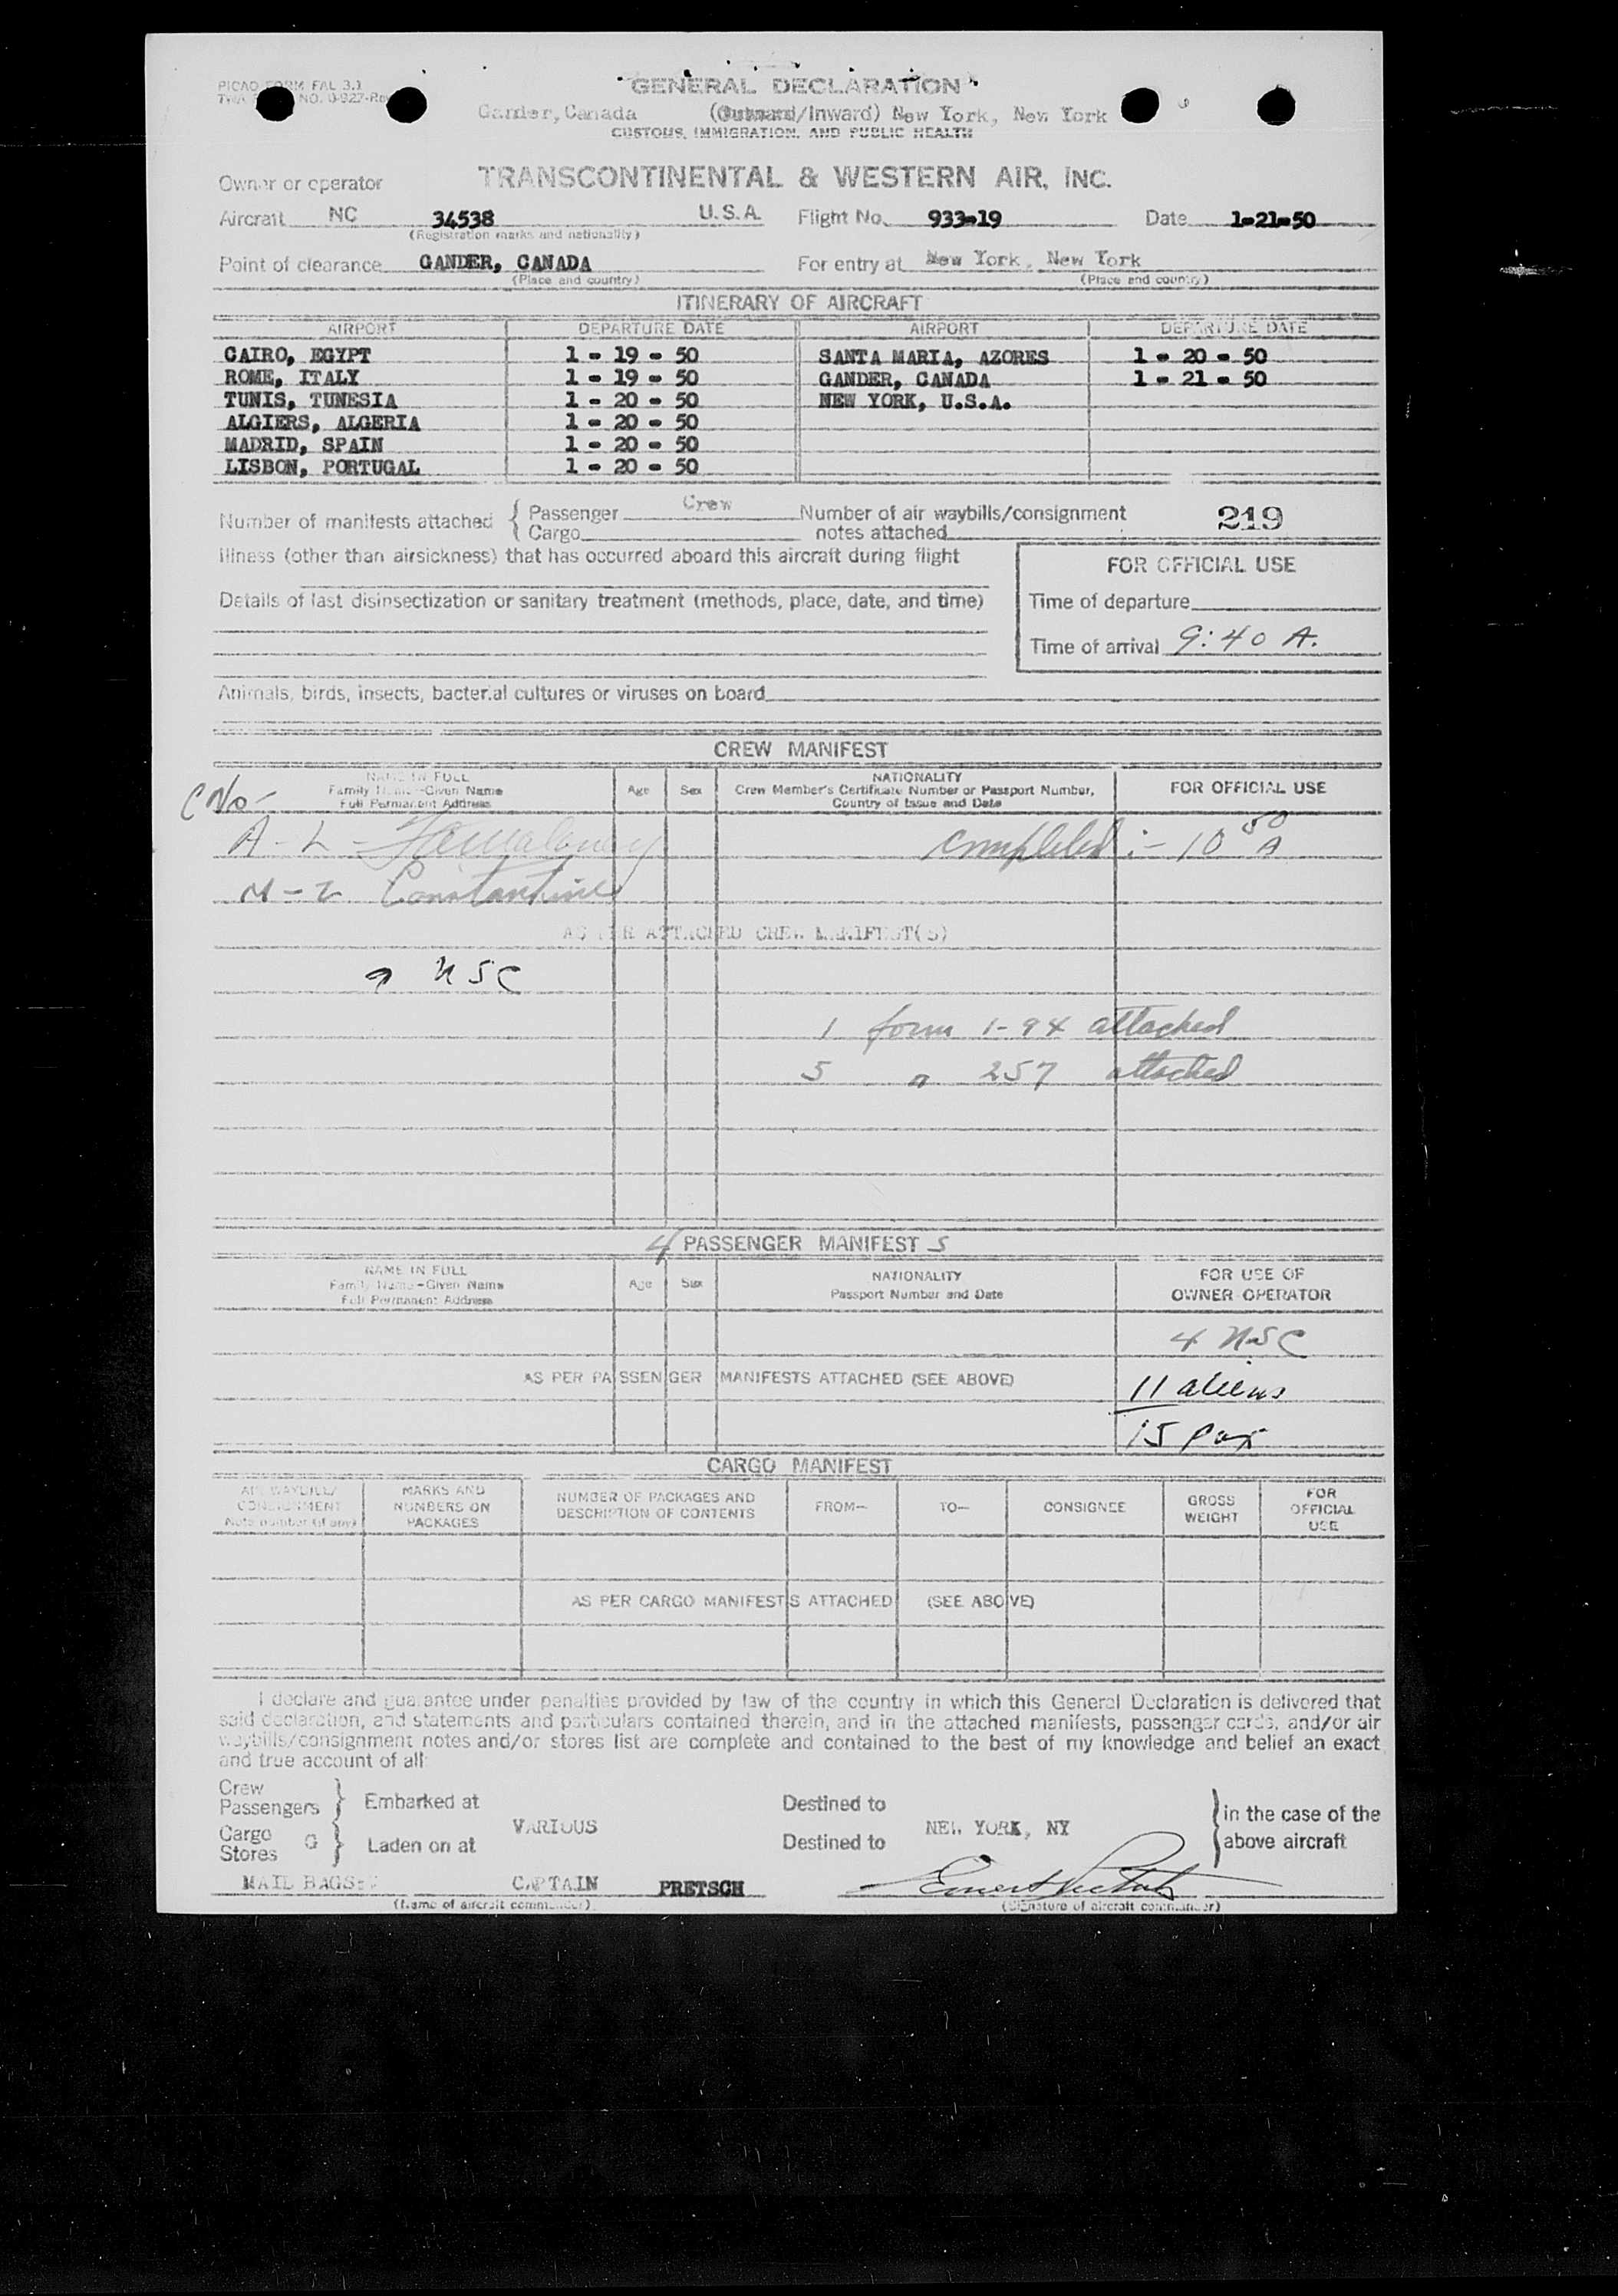 PICAO FORM FAL 3.1
NO. 0-927-Rev
GENERAL DECLARATION
Gander, Canada (Outward/Inward) New York, New York
CUSTOMS, IMMIGRATION, AND PUBLIC HEALTH
Owner or operator TRANSCONTINENTAL & WESTERN AIR, INC.
Aircraft NC 34538 U.S.A. Flight No. 933-19 Date 1-21-50
(Registration marks and nationality)
Point of clearance GANDER, CANADA For entry at New York, New York
(Place and country) (Place and country)
ITINERARY OF AIRCRAFT
AIRPORT DEPARTURE DATE AIRPORT DEPARTURE DATE
CAIRO, EGYPT 1 - 19 - 50 SANTA MARIA, AZORES 1 - 20 - 50
ROME, ITALY 1 - 19 - 50 GANDER, CANADA 1 - 21 - 50
TUNIS, TUNESIA 1 - 20 - 50 NEW YORK, U.S.A.
ALGIERS, ALGERIA 1 - 20 - 50
MADRID, SPAIN 1 - 20 - 50
LISBON, PORTUGAL 1 - 20 - 50
Number of manifests attached { Passenger Crew Number of air waybills/consignment 219
Cargo notes attached
Illness (other than airsickness) that has occurred aboard this aircraft during flight
FOR OFFICIAL USE
Details of last disinsectization or sanitary treatment (methods, place, date, and time)
Time of departure
Time of arrival 9:40 A.
Animals, birds, insects, bacterial cultures or viruses on board
CREW MANIFEST
NAME IN FULL NATIONALITY
C No- Family Name-Given Name Age Sex Crew Member's Certificate Number or Passport Number, FOR OFFICIAL USE
Full Permanent Address Country of Issue and Date
A - L - completed :- 10 50 A
M - Z Constantine
AS PER ATTACHED CREW MANIFEST(S)
9 USC
1 form 1-94 attached
5 " 257 attached
4 PASSENGER MANIFEST S
NAME IN FULL NATIONALITY FOR USE OF
Family Name-Given Name Age Sex
Full Permanent Address Passport Number and Date OWNER OPERATOR
4 USC
AS PER PASSENGER MANIFESTS ATTACHED (SEE ABOVE)
11 aliens
15 pax
CARGO MANIFEST
AIR WAYBILL/ MARKS AND NUMBER OF PACKAGES AND FROM— TO— CONSIGNEE GROSS FOR
CONSIGNMENT NUMBERS ON DESCRIPTION OF CONTENTS WEIGHT OFFICIAL
Note number (if any) PACKAGES USE
AS PER CARGO MANIFESTS ATTACHED (SEE ABOVE)
I declare and guarantee under penalties provided by law of the country in which this General Declaration is delivered that
said declaration, and statements and particulars contained therein, and in the attached manifests, passenger cards, and/or air
waybills/consignment notes and/or stores list are complete and contained to the best of my knowledge and belief an exact
and true account of all:
Crew
Passengers } Embarked at Destined to } in the case of the
VARIOUS NEW YORK, NY
Cargo G
Stores } Laden on at Destined to above aircraft
MAIL BAGS CAPTAIN PRETSCH
(Name of aircraft commander) (Signature of aircraft commander)